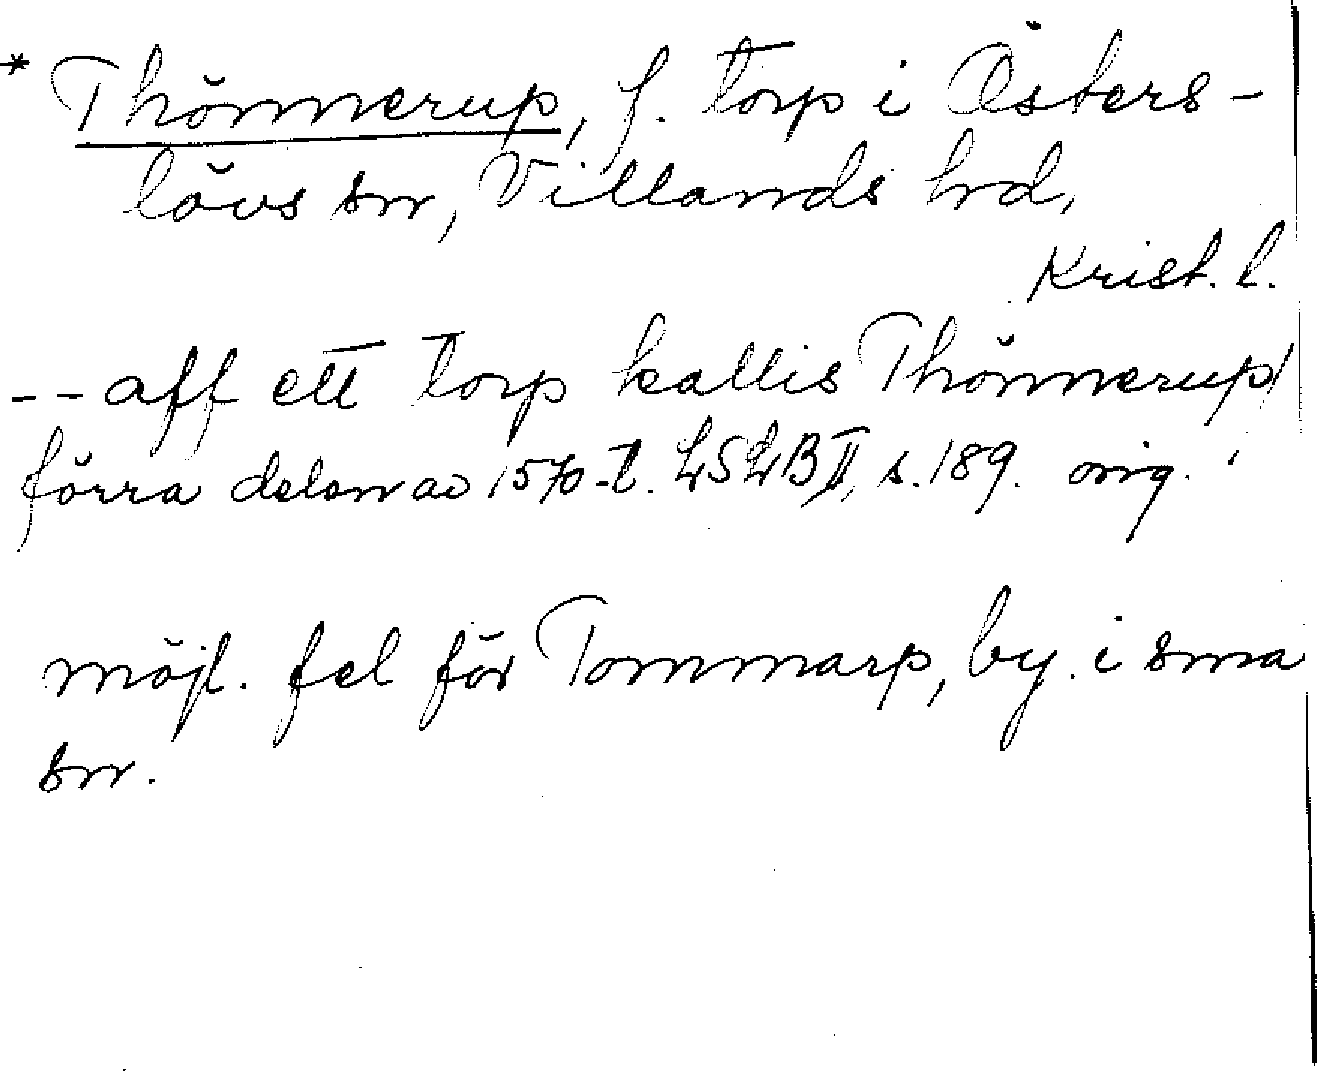 * Thönnerup, f. torp i Östers-
lövs sn, Villands hd,
Krist. l.
-- aff ett torp kallis Thönnerup/
förra delen av 1570-t. LSLB II, s. 189. orig.
möjl. fel för Tommarp, by. i sma
sn.